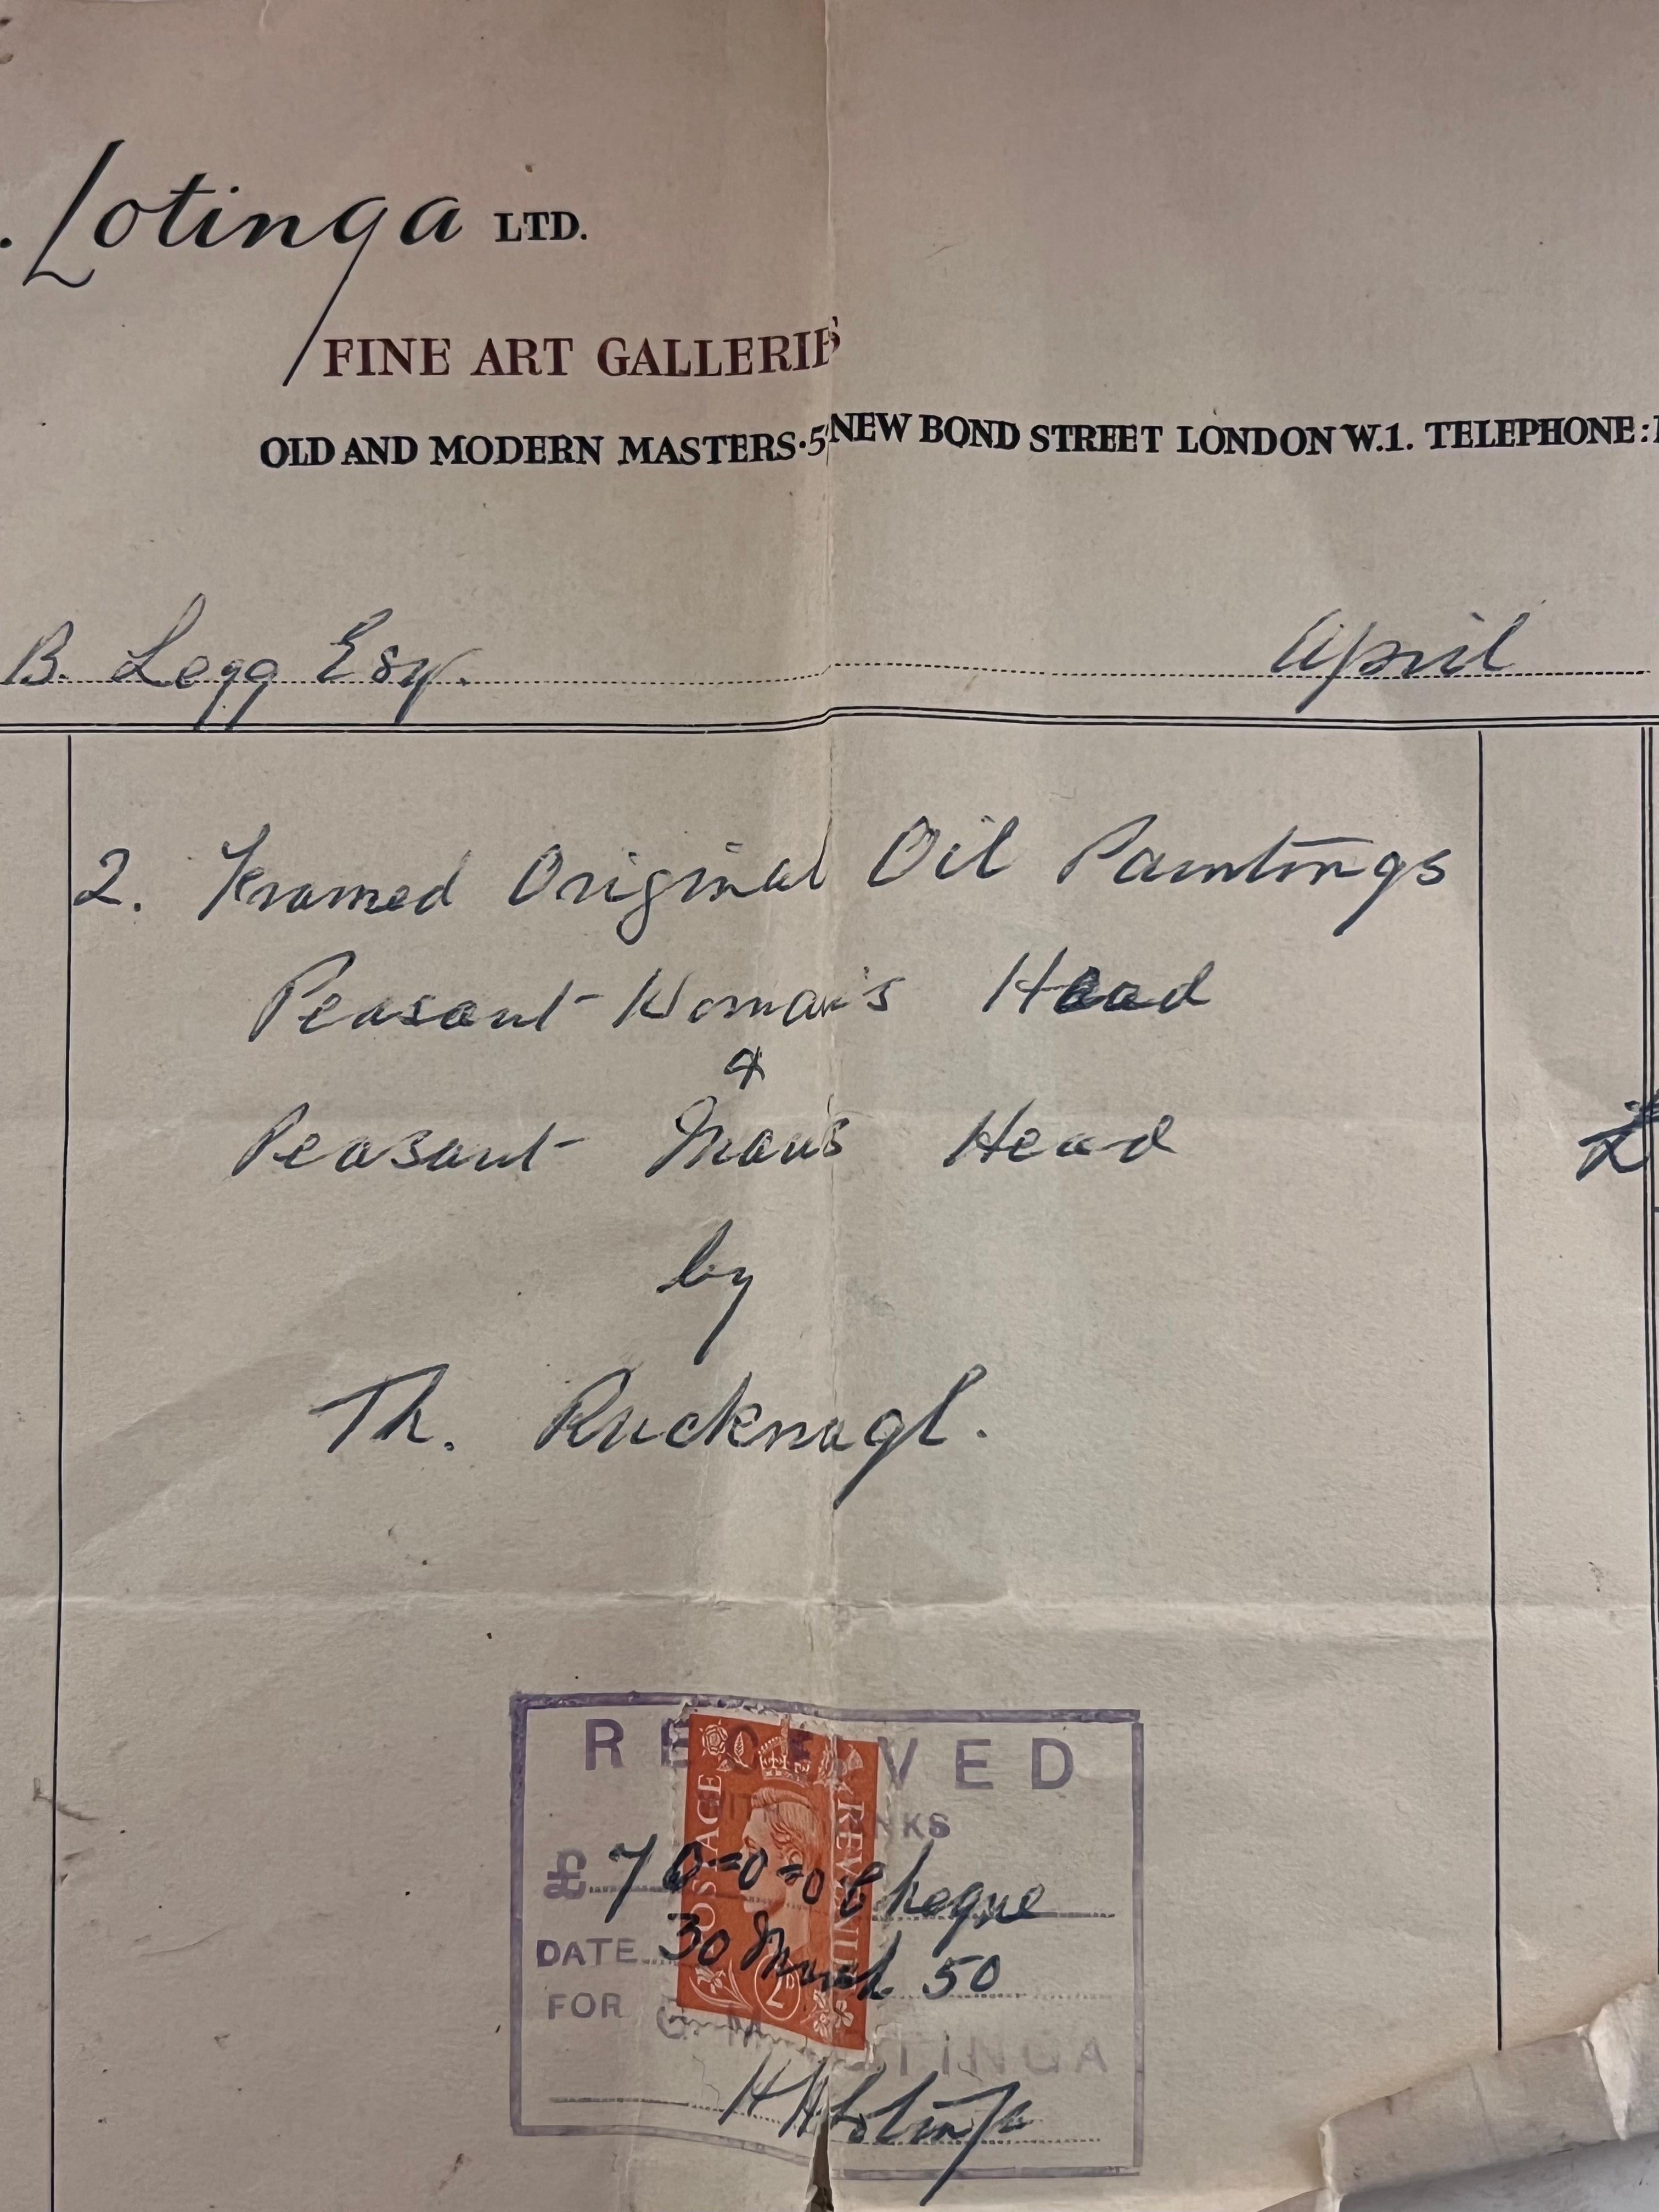 . Lotinga LTD.
FINE ART GALLERIES
OLD AND MODERN MASTERS · 5 NEW BOND STREET LONDON W.1. TELEPHONE:
B. Legg Esq. April
2. Framed Original Oil Paintings
Peasant Woman's Head
&
Peasant Man's Head £
by
Th. Rucknagl.
RECEIVED
£ 70=0=0 Cheque
DATE 30 March 50
FOR G. M. LOTINGA
POSTAGE REVENUE
2D
Lotinga